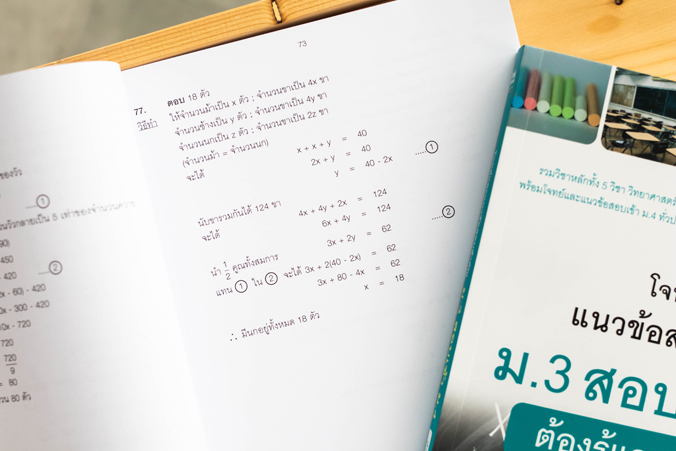 73
77.
ตอบ 18 ตัว
วิธีทำ
ให้จำนวนม้าเป็น x ตัว ; จำนวนขาเป็น 4x ขา
จำนวนช้างเป็น y ตัว ; จำนวนขาเป็น 4y ขา
จำนวนนกเป็น z ตัว ; จำนวนขาเป็น 2z ขา
(จำนวนม้า = จำนวนนก)
จะได้ x + x + y = 40
2x + y = 40
y = 40 - 2x .....①
นับขารวมกันได้ 124 ขา
จะได้ 4x + 4y + 2x = 124
6x + 4y = 124 .....②
3x + 2y = 62
นำ 1/2 คูณทั้งสมการ
แทน ① ใน ② จะได้ 3x + 2(40 - 2x) = 62
3x + 80 - 4x = 62
x = 18
∴ มีนกอยู่ทั้งหมด 18 ตัว
ของวัว
.....①
90)
450
- 420 .....②
- 60) - 420
- 300 - 420
- 720
720
720
9
= 80
80 ตัว
รวมวิชาหลักทั้ง 5 วิชา วิทยาศาสตร์
พร้อมโจทย์และแนวข้อสอบเข้า ม.4 ทั่วป
แนวข้อส
ม.3 สอบ